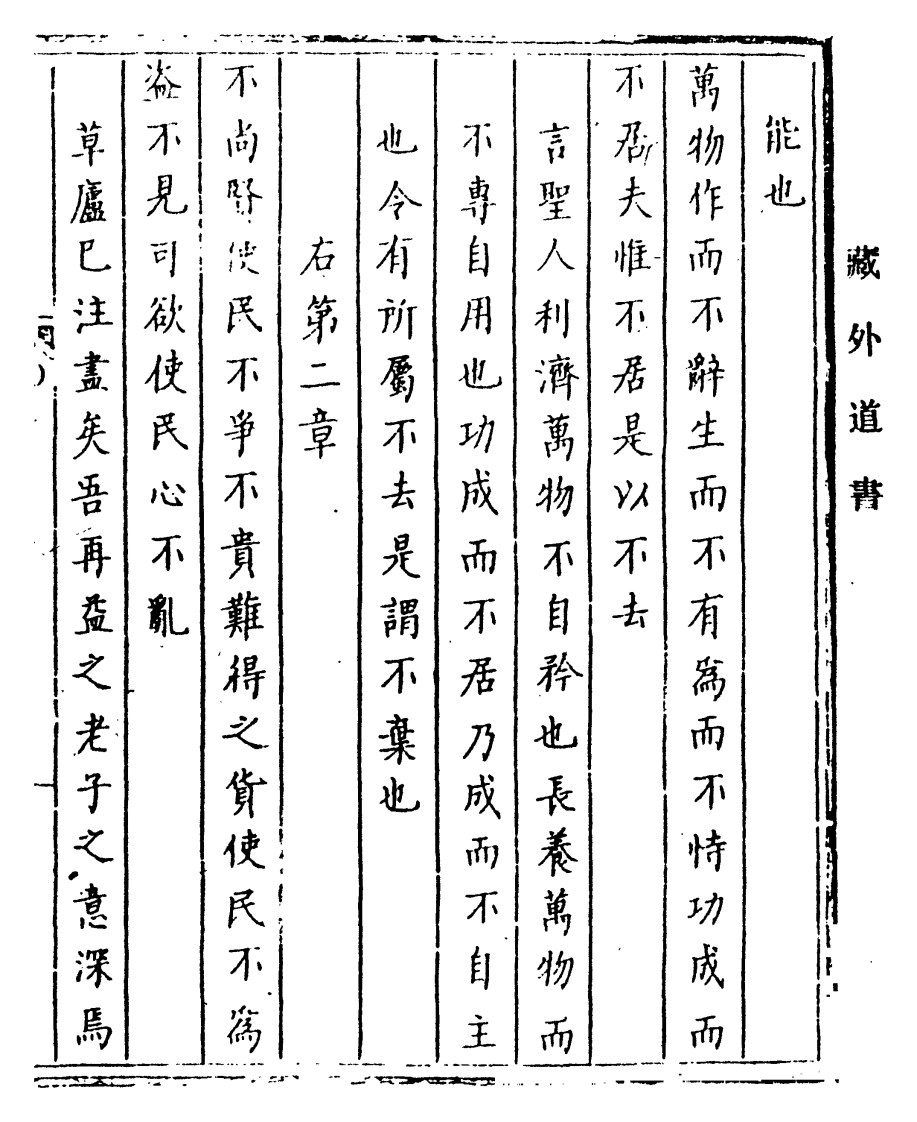 藏外道書
能也
萬物作而不辭生而不有爲而不恃功成而
不居夫惟不居是以不去
言聖人利濟萬物不自矜也長養萬物而
不專自用也功成而不居乃成而不自主
也令有所屬不去是謂不棄也
右第二章
不尚賢使民不爭不貴難得之貨使民不爲
盜不見可欲使民心不亂
草廬已注盡矣吾再益之老子之意深焉